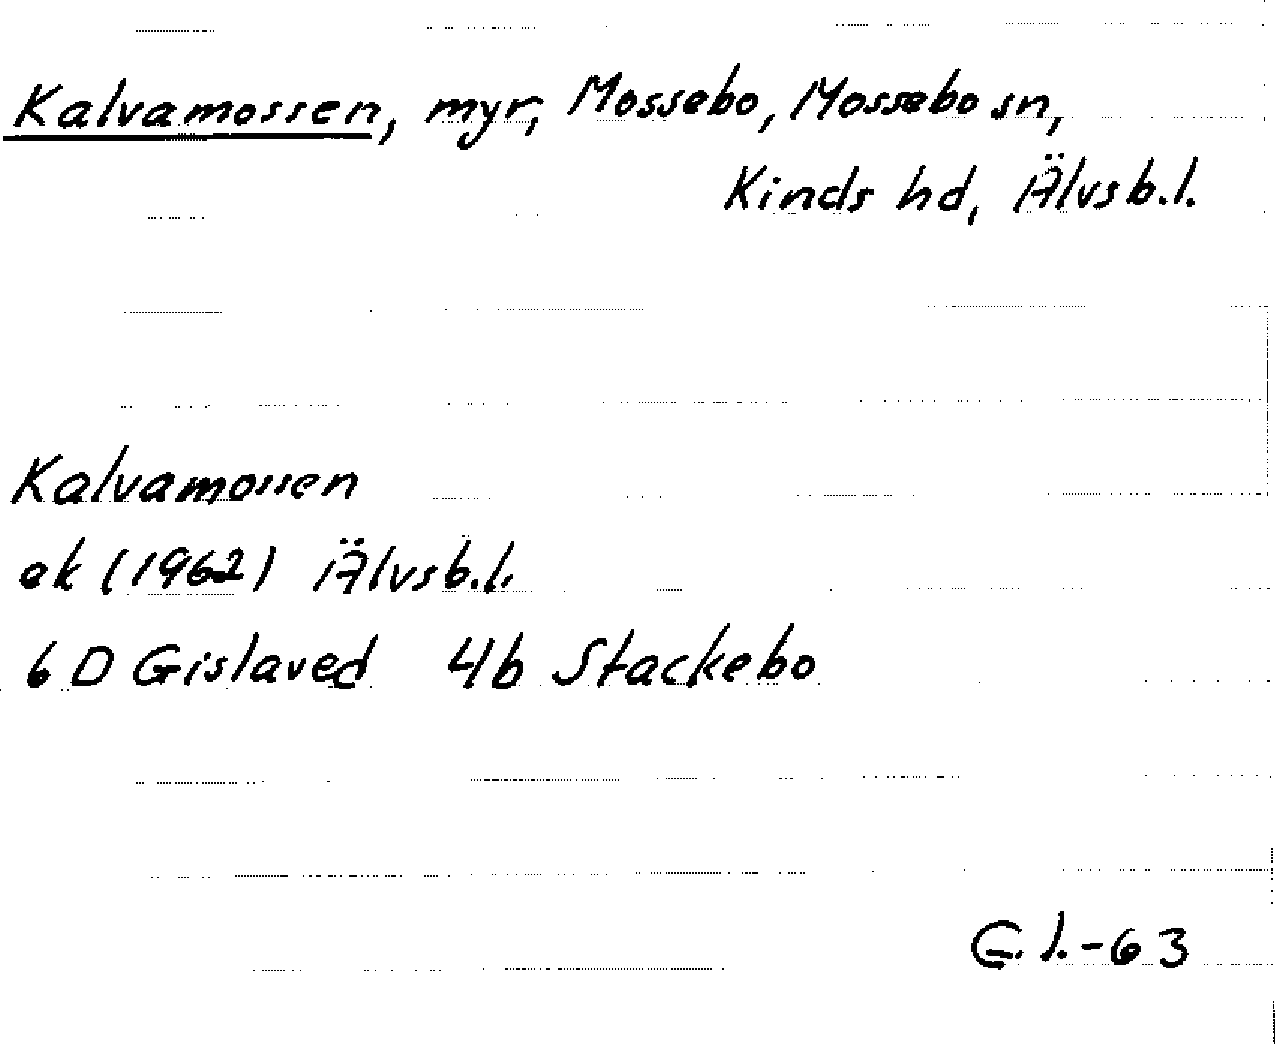 Kalvamossen, myr, Mossebo, Mossebo sn,
Kinds hd, Älvsb.l.
Kalvamossen
ek (1962) Älvsb.l.
6 D Gislaved 4b Stackebo
G.l.-63